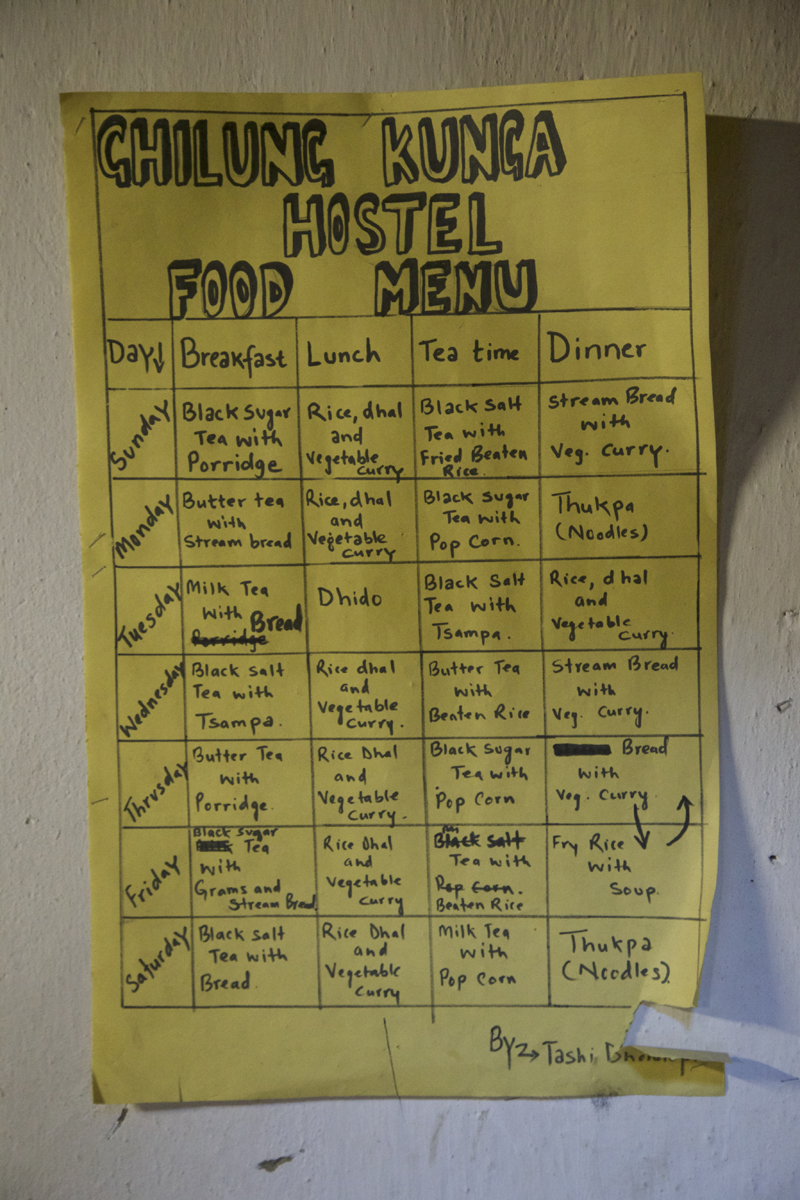 GHILUNG KUNGA
HOSTEL
FOOD MENU
Day↓ Breakfast Lunch Tea time Dinner
Sunday
Black Sugar
Tea with
Porridge
Rice, dhal
and
Vegetable
curry
Black Salt
Tea with
Fried Beaten
Rice.
Stream Bread
with
Veg. Curry.
Monday
Butter tea
with
Stream bread
Rice, dhal
and
Vegetable
curry
Black Sugar
Tea with
Pop Corn.
Thukpa
(Noodles)
Tuesday
Milk Tea
with Bread
Porridge
Dhido
Black Salt
Tea with
Tsampa.
Rice, dhal
and
Vegetable
curry.
Wednesday
Black Salt
Tea with
Tsampa.
Rice dhal
and
Vegetable
Curry.
Butter Tea
with
Beaten Rice
Stream Bread
with
Veg. Curry.
Thrusday
Butter Tea
with
Porridge.
Rice Dhal
and
Vegetable
Curry.
Black Sugar
Tea with
Pop Corn
Bread
with
Veg. Curry
Friday
Black Sugar
Tea
with
Grams and
Stream Bread
Rice Dhal
and
Vegetable
Curry
Black Salt
Tea with
Pop Corn.
Beaten Rice
Fry Rice
with
Soup.
Saturday
Black Salt
Tea with
Bread.
Rice Dhal
and
Vegetable
Curry
Milk Tea
with
Pop Corn
Thukpa
(Noodles)
By→ Tashi